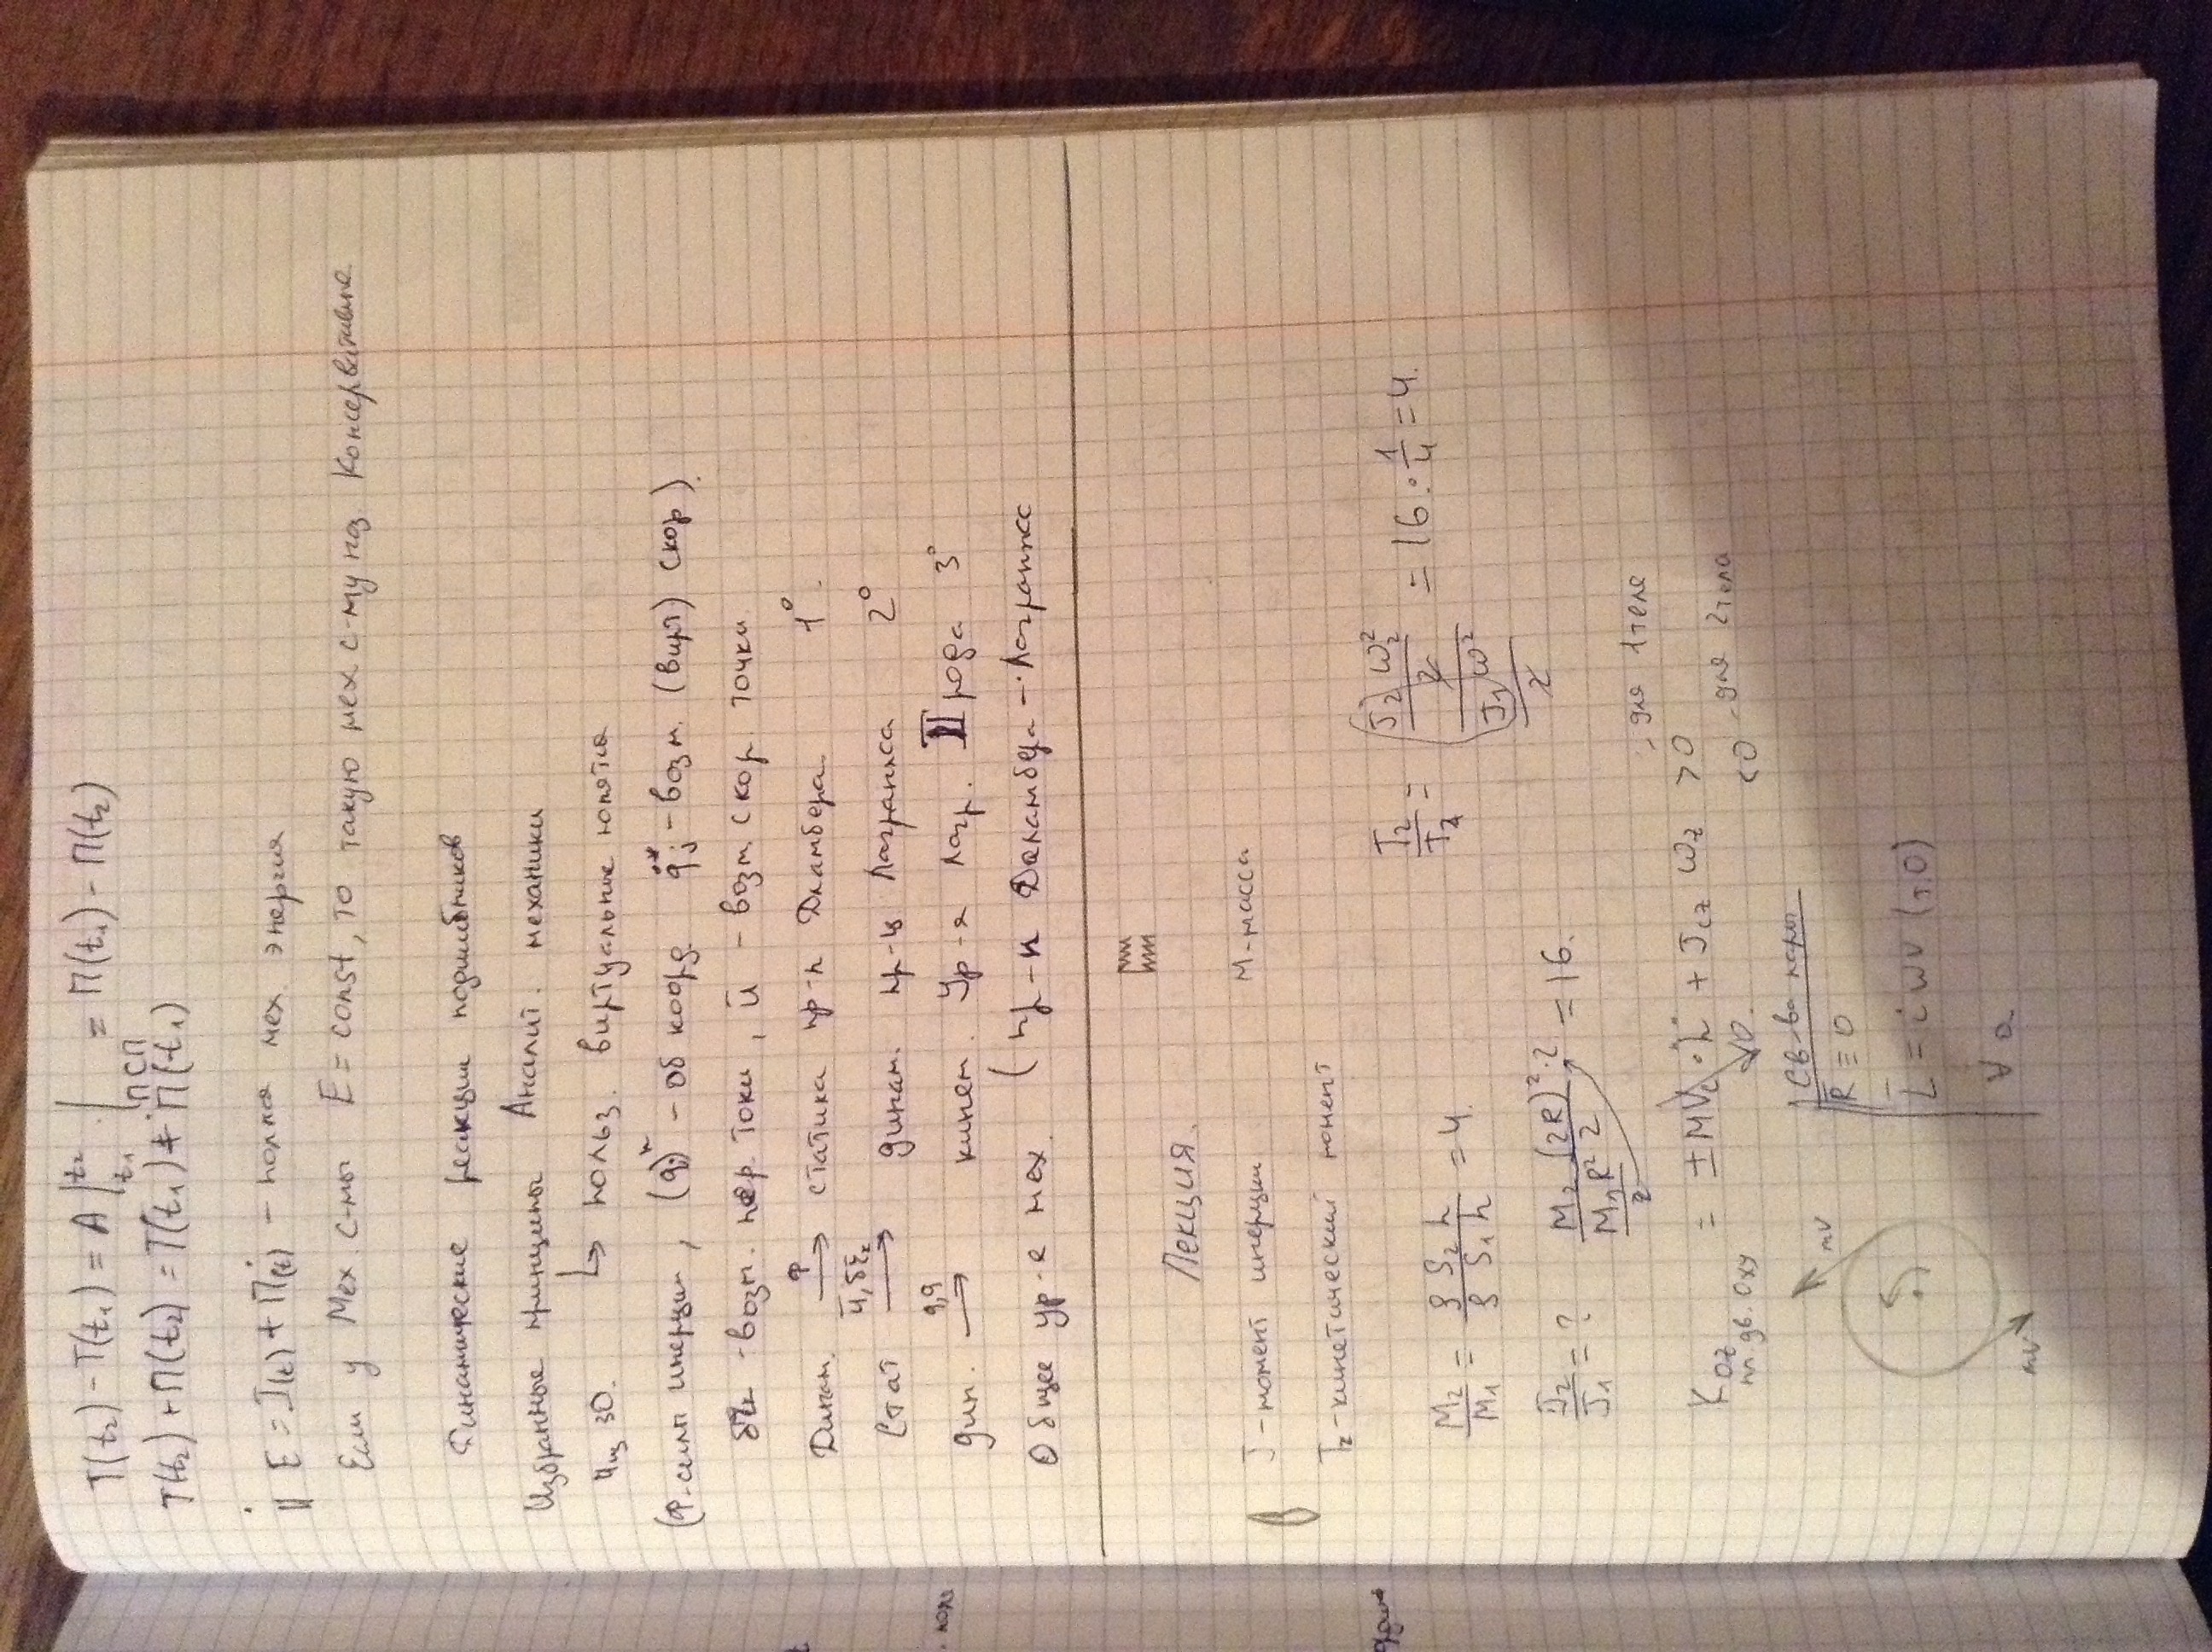 T(t₂) - T(t₁) = A |t₁ t₂ | ПСП = П(t₁) - П(t₂)
T(t₂) + П(t₂) = T(t₁) + П(t₁)
E = T(t) + П(t) - полная мех. энергия
Если у Мех. с-мы E = const, то такую мех с-му наз. Консервативне
Динамические реакции подшибников
Избранные принципы Аналит. механики
↳ польз. виртуальные
(Ф-силп инерции, (qj) - об коорд. q̈j - возм. (вирт) скор).
- возм. пер. токи, ū - возм. скор. точки
Динам. Ф→ статика пр-п Дламбера. 1°.
Стат → динам. пр-ц Лагранжса 2°
дин. → кинет. Ур-я Лагр. II рода 3°
Общее ур-е мех. (пр-п Даламбера - Лагранжс
Лекция.
J - момент инерции M - масса
- кинетический момент
M₂/M₁ = ρ S₂ h / ρ S₁ h = 4.
T₂/T₁ = (J₂ ω₂²/2) / (J₁ ω²/2) = 16 · 1/4 = 4.
J₂/J₁ = ? M₂ (2R)² · 2 / M₁ R² 2 = 16.
, для 1 теле
K oz пл. дв. Oxy = ± M Vc · h + Jcz ωz > 0
< 0, для 2 тело
Св-ва пары
R̄ ≡ 0
mv
L̄ = inv (т.О)
mv
∀ О